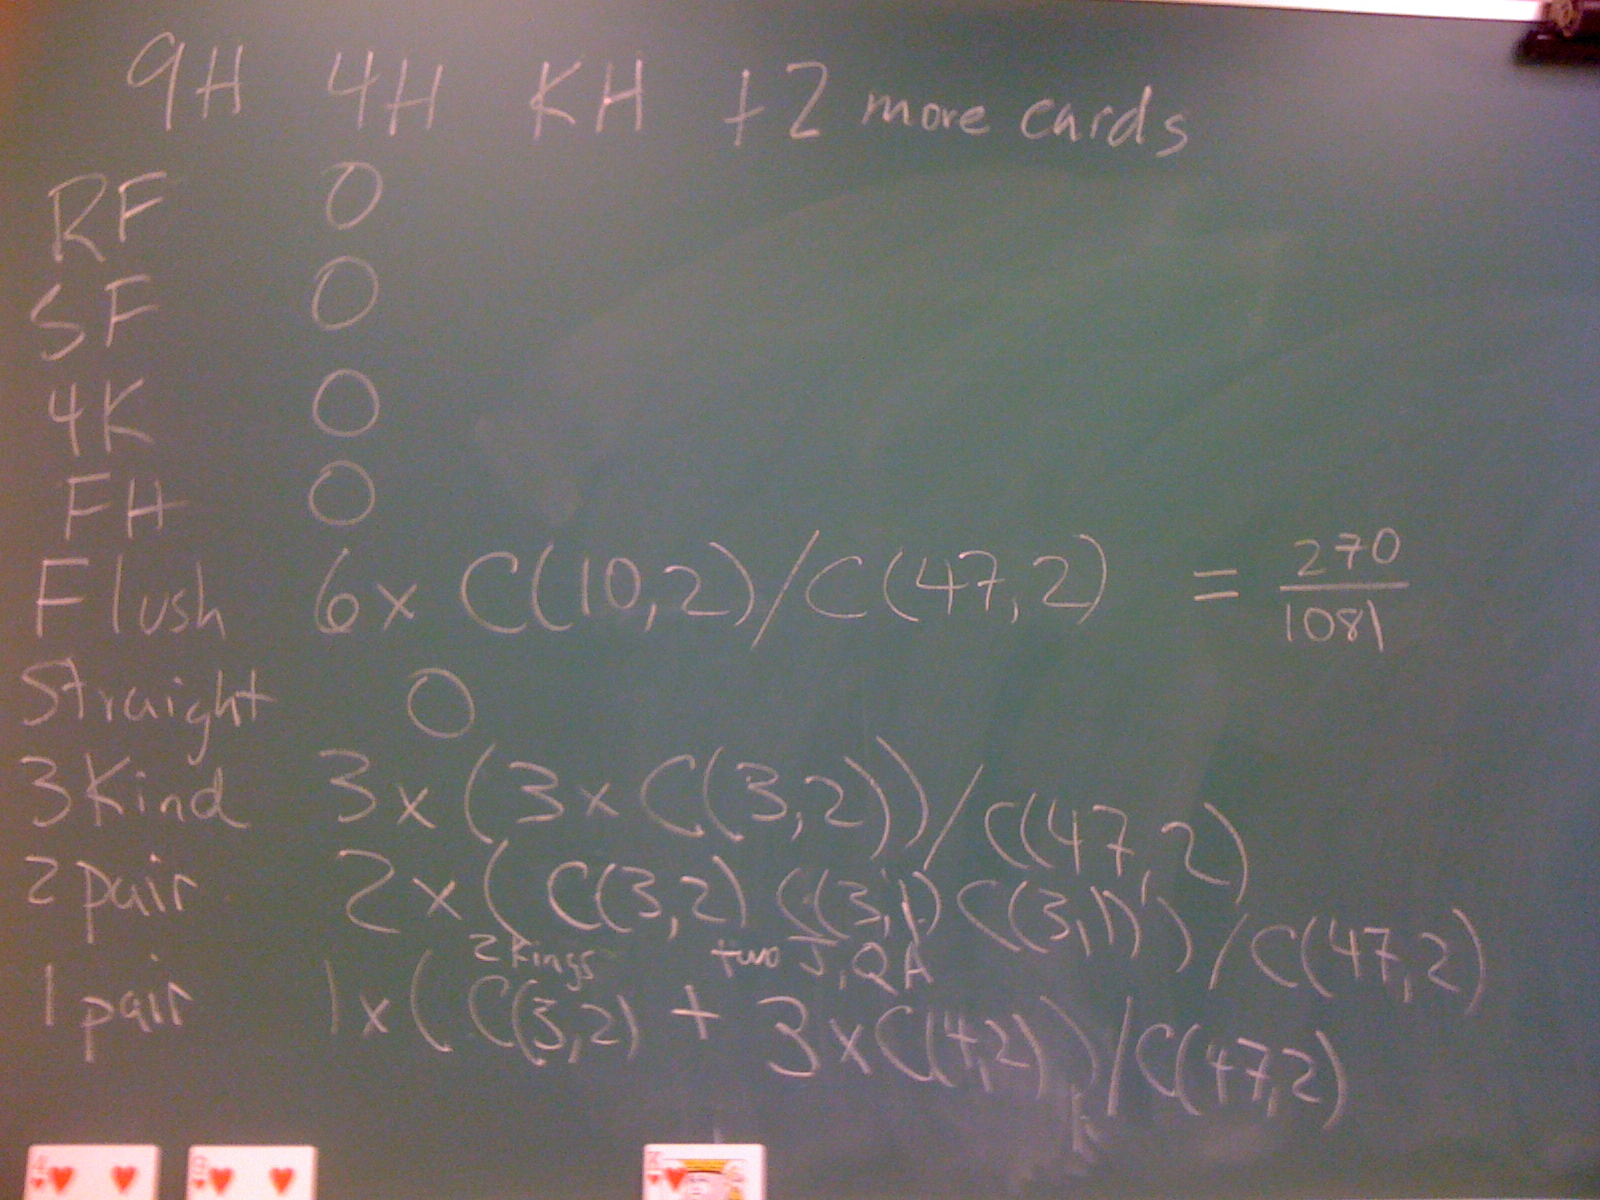 9H 4H KH +2 more cards
RF 0
SF 0
4K 0
FH 0
Flush 6x C(10,2)/C(47,2) = 270/1081
Straight 0
3 Kind 3x (3x C(3,2))/C(47,2)
2 pair 2x (C(3,2) C(3,1) C(3,1))/C(47,2)
2 Kings two J, Q A
1 pair 1x (C(3,2) + 3x C(4,2))/C(47,2)
K